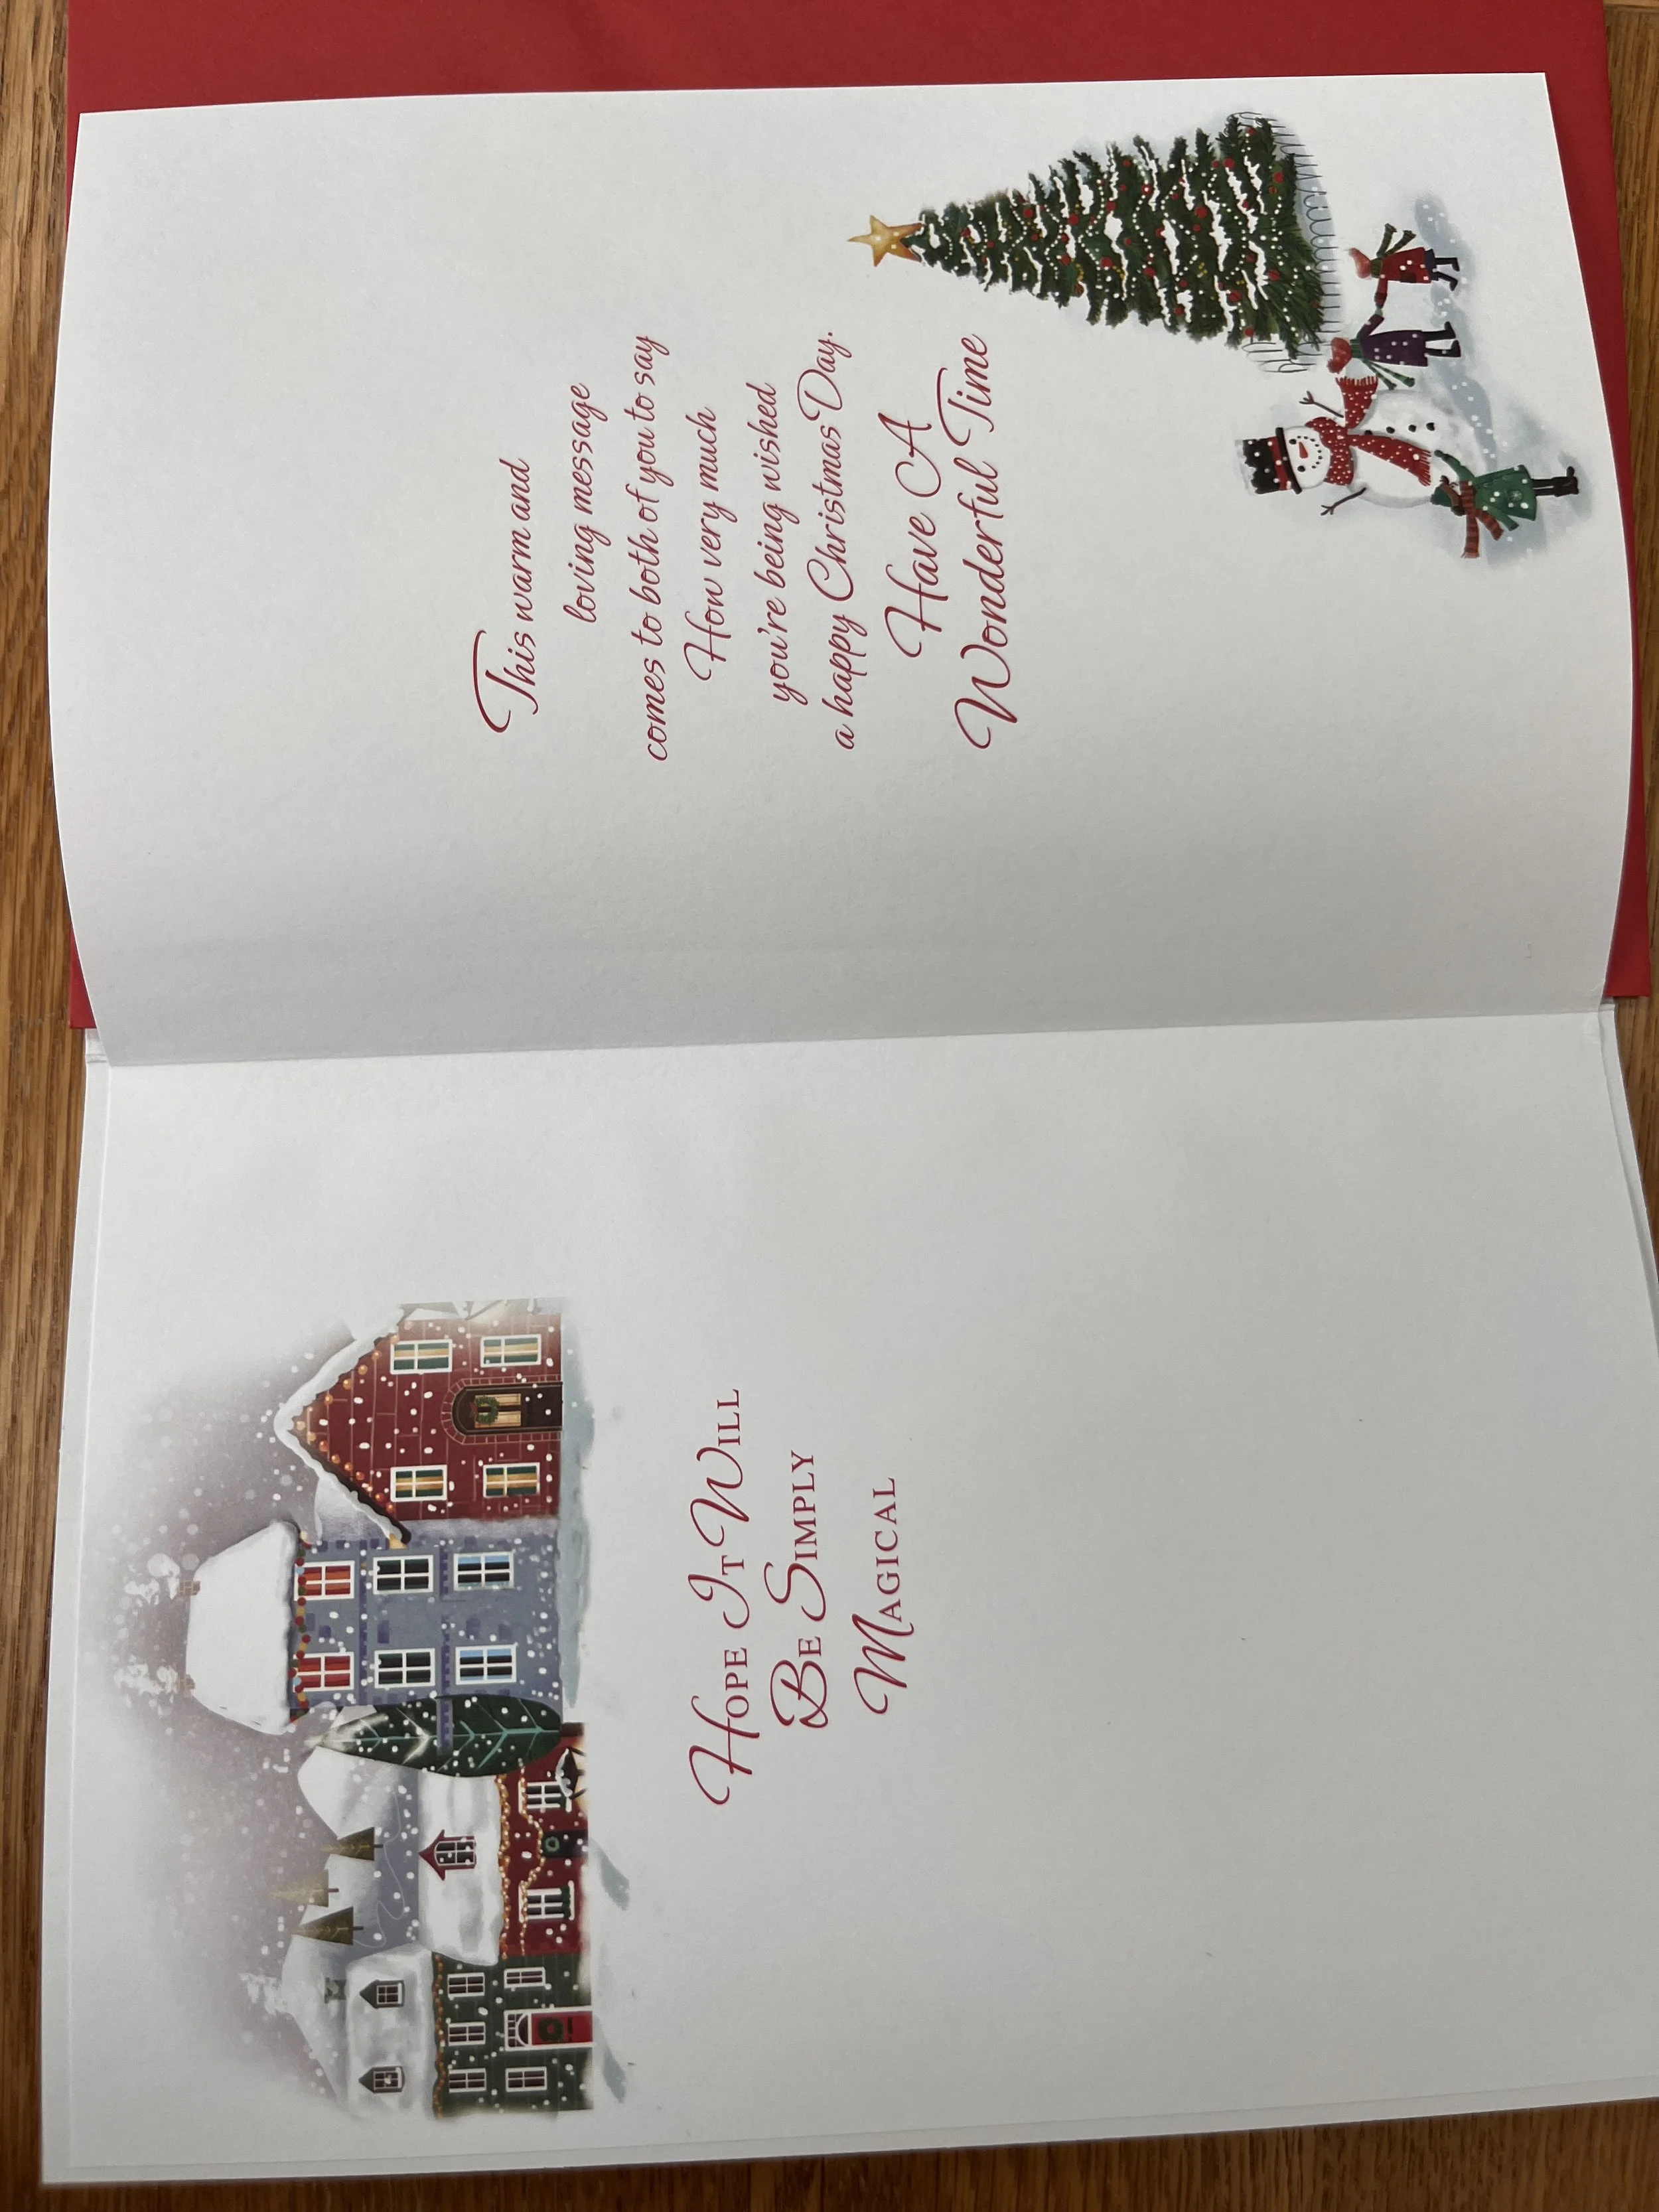 Hope It Will
Be Simply
Magical
This warm and
loving message
comes to both of you to say
How very much
you're being wished
a happy Christmas Day.
Have A
Wonderful Time